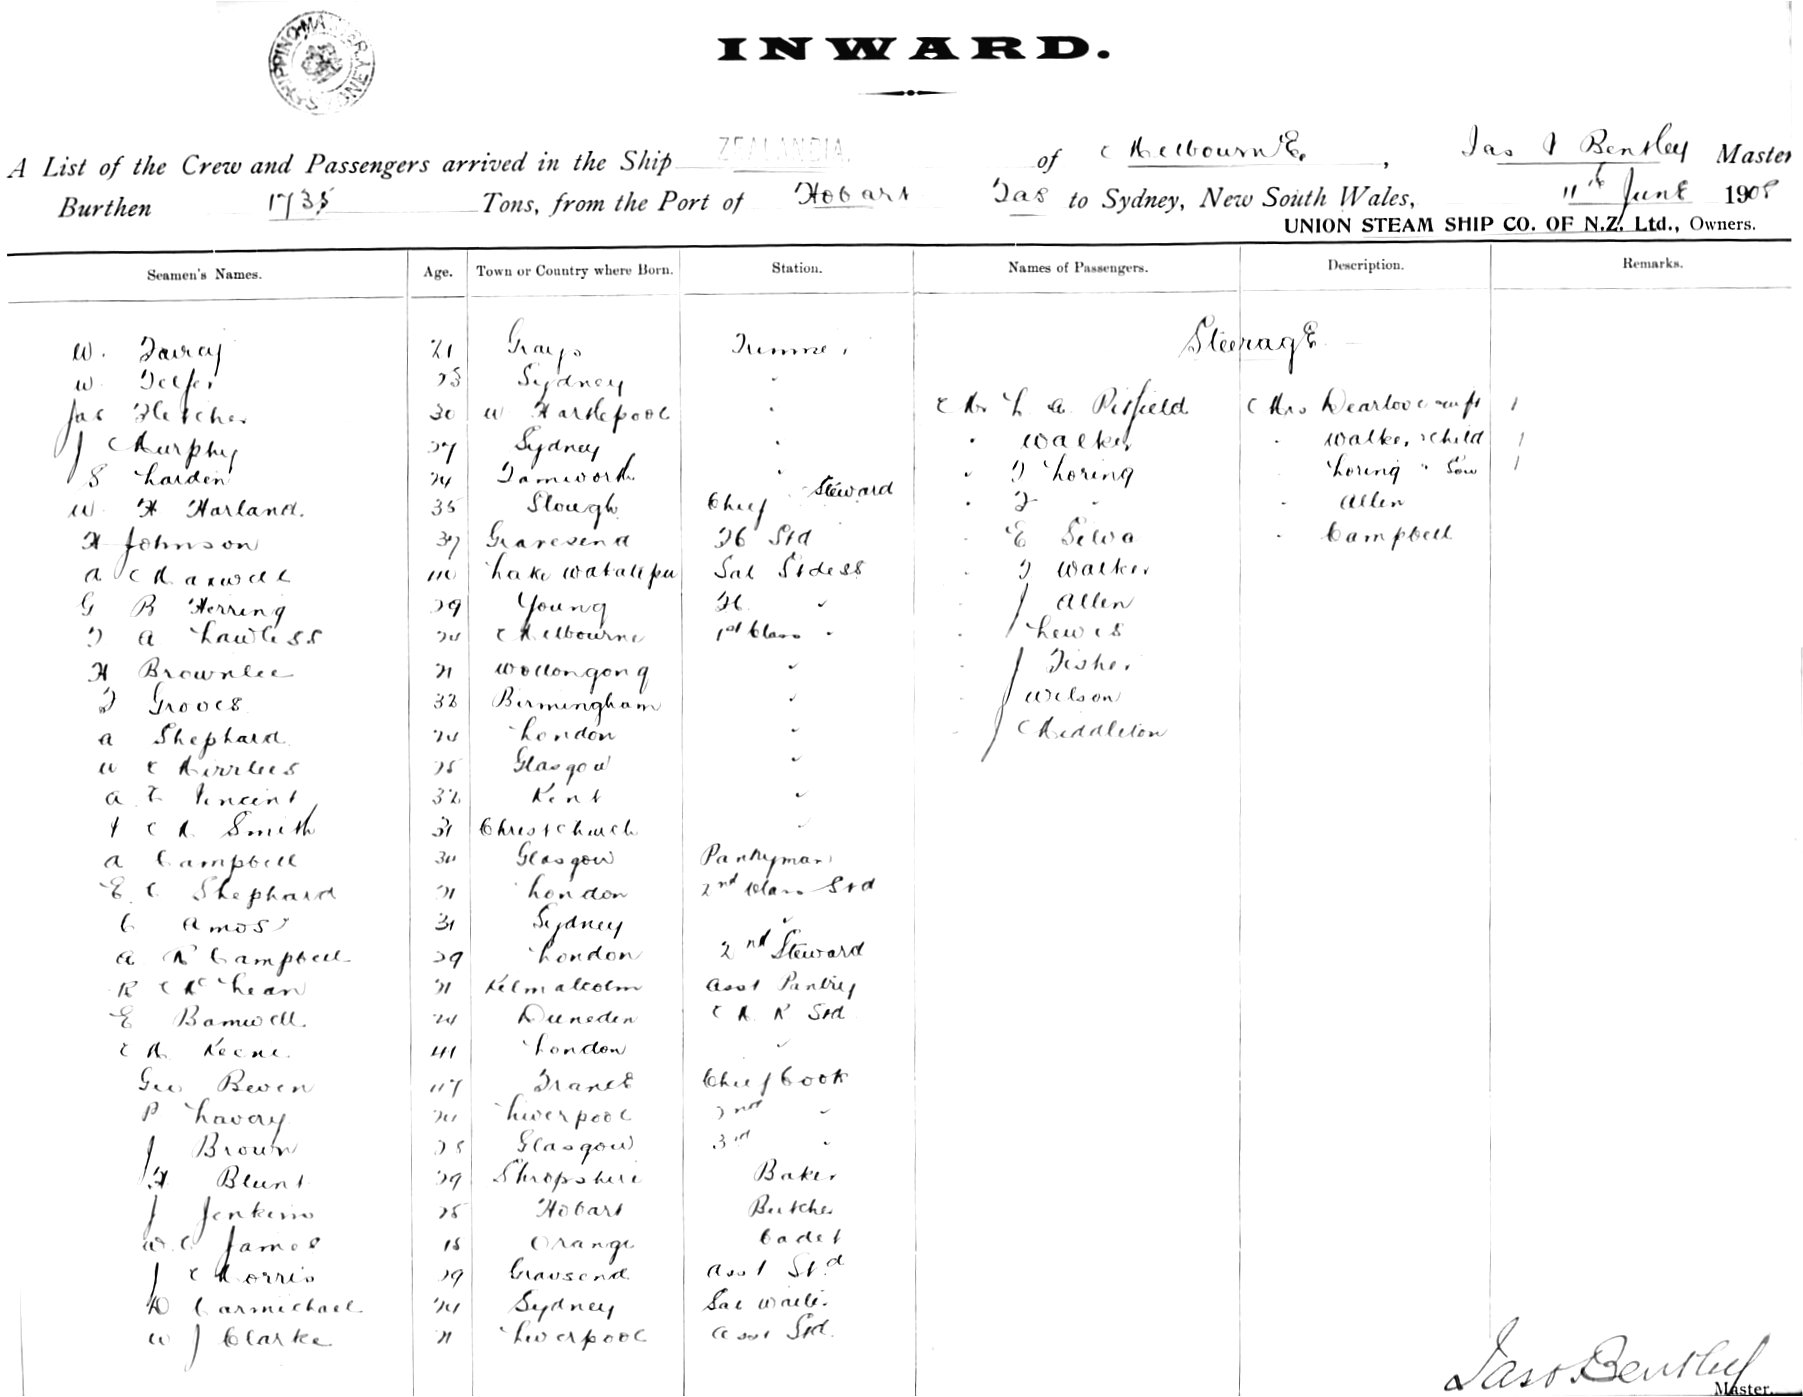 SHIPPING MASTER SYDNEY
INWARD.
A List of the Crew and Passengers arrived in the Ship ZEALANDIA. of MelbournE, Jas Bentley Master
Burthen 1735 Tons, from the Port of Hobart Tas to Sydney, New South Wales, 11th June 1908
UNION STEAM SHIP CO. OF N.Z. Ltd., Owners.
Seamen's Names. Age. Town or Country where Born. Station. Names of Passengers. Description. Remarks.
SteeragE
W. 21 Grays Trimmer
W. Telfer Sydney "
Jas Fletcher 30 W Hartlepool " Mr L A Pitfield Mrs Dearlove & inft 1
J Murphy 27 Sydney " " Walker " Walker & child 1
S Larden 24 Tamworth " " T Loring " Loring " Son 1
W H Harland. 35 Slough Chief Steward " T " " Allen
H Johnson 37 Gravesend FC Std " E Silva " Campbell
A Maxwell 40 Lake Wakatipu Sal Stdess " T Walker
G B Herring 29 Young FC " " J Allen
T A Lawless 24 Melbourne 1st Class " " J Lewis
H Brownlee 21 Wollongong " " J Fisher
T Groves 32 Birmingham " " J Wilson
A Shephard 24 London " " J Middleton
W Mirrlees 25 Glasgow "
A E Vincent 32 Kent "
M Smith 31 Christchurch "
A Campbell 30 Glasgow Pantryman
E C Shephard 21 London 2nd Class Std
C Amos 31 Sydney "
A R Campbell 29 London 2nd Steward
R McLean 21 Kilmalcolm Asst Pantry
E Bamwell. 24 Dunedin M R Std
M Keene. 41 London "
Geo Beven 47 FrancE Chief Cook
P Lavery 24 Liverpool 2nd "
J Brown 25 Glasgow 3rd "
H Blunt 29 Shropshire Baker
J Jenkins 25 Hobart Butcher
W. C James 18 Orange Cadet
J Morris 29 Gravsend Asst Std
D Carmichael 24 Sydney Sal Waiter
W J Clarke 21 Liverpool Asst Std.
Jas Bentley
Master.